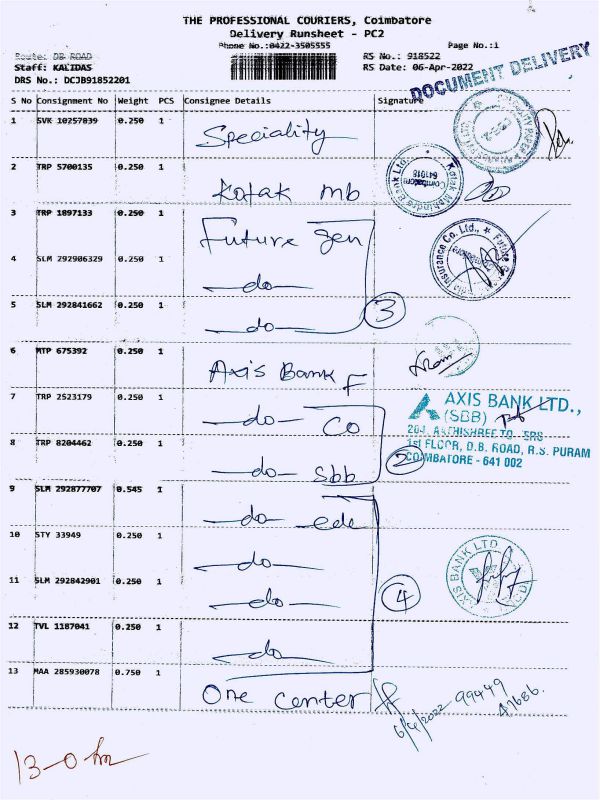 THE PROFESSIONAL COURIERS, Coimbatore
Delivery Runsheet - PC2
Phone No.:0422-3505555 Page No.:1
Route: DB ROAD RS No.: 918522
Staff: KALIDAS RS Date: 06-Apr-2022
DRS No.: DCJB91852201
DOCUMENT DELIVERY
S No Consignment No Weight PCS Consignee Details Signature
1 SVK 10257839 0.250 1 Speciality
2 TRP 5700135 0.250 1 Kotak mb
Kotak Mahindra Bank Ltd. Coimbatore 641018
3 TRP 1897133 0.250 1 Future gen
Insurance Co. Ltd., Future
4 SLM 292906329 0.250 1 do
5 SLM 292841662 0.250 1 do
3
6 MTP 675392 0.250 1 Axis Bank F
7 TRP 2523179 0.250 1 do Co
AXIS BANK LTD.,
(SBB)
8 TRP 8204462 0.250 1 do Sbb
2
1st FLOOR, D.B. ROAD, R.S. PURAM
COIMBATORE - 641 002
9 SLM 292877707 0.545 1 do
10 STY 33949 0.250 1 do
AXIS BANK LTD
11 SLM 292842901 0.250 1 do
4
12 TVL 1187041 0.250 1 do
13 MAA 285930078 0.750 1 One center
6/4/2022 99449
47686